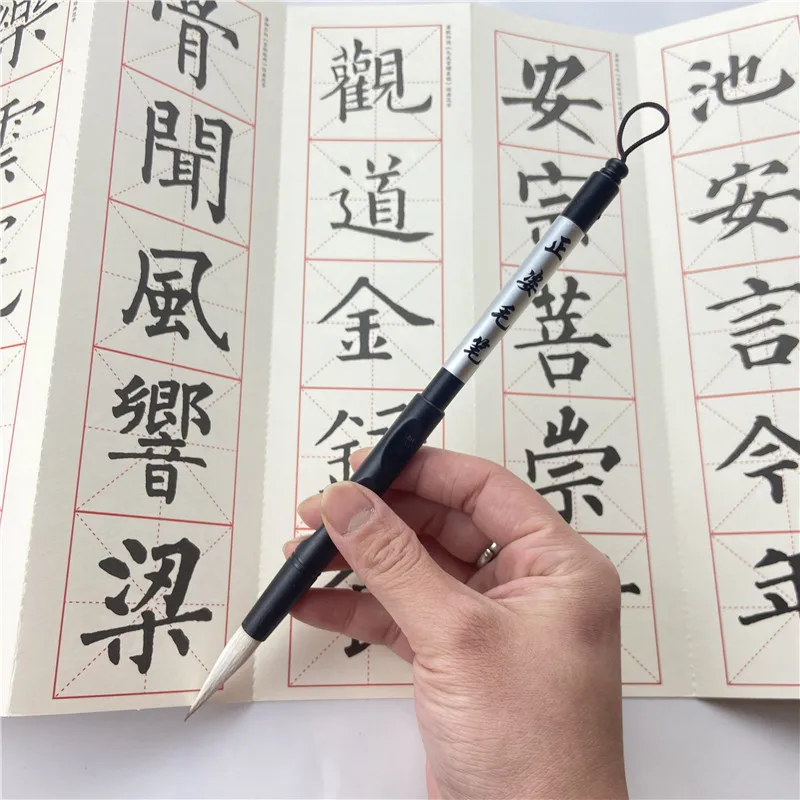 池安言令年
安宗菩崇
觀道金
骨聞風響梁
樂雲
正姿毛笔